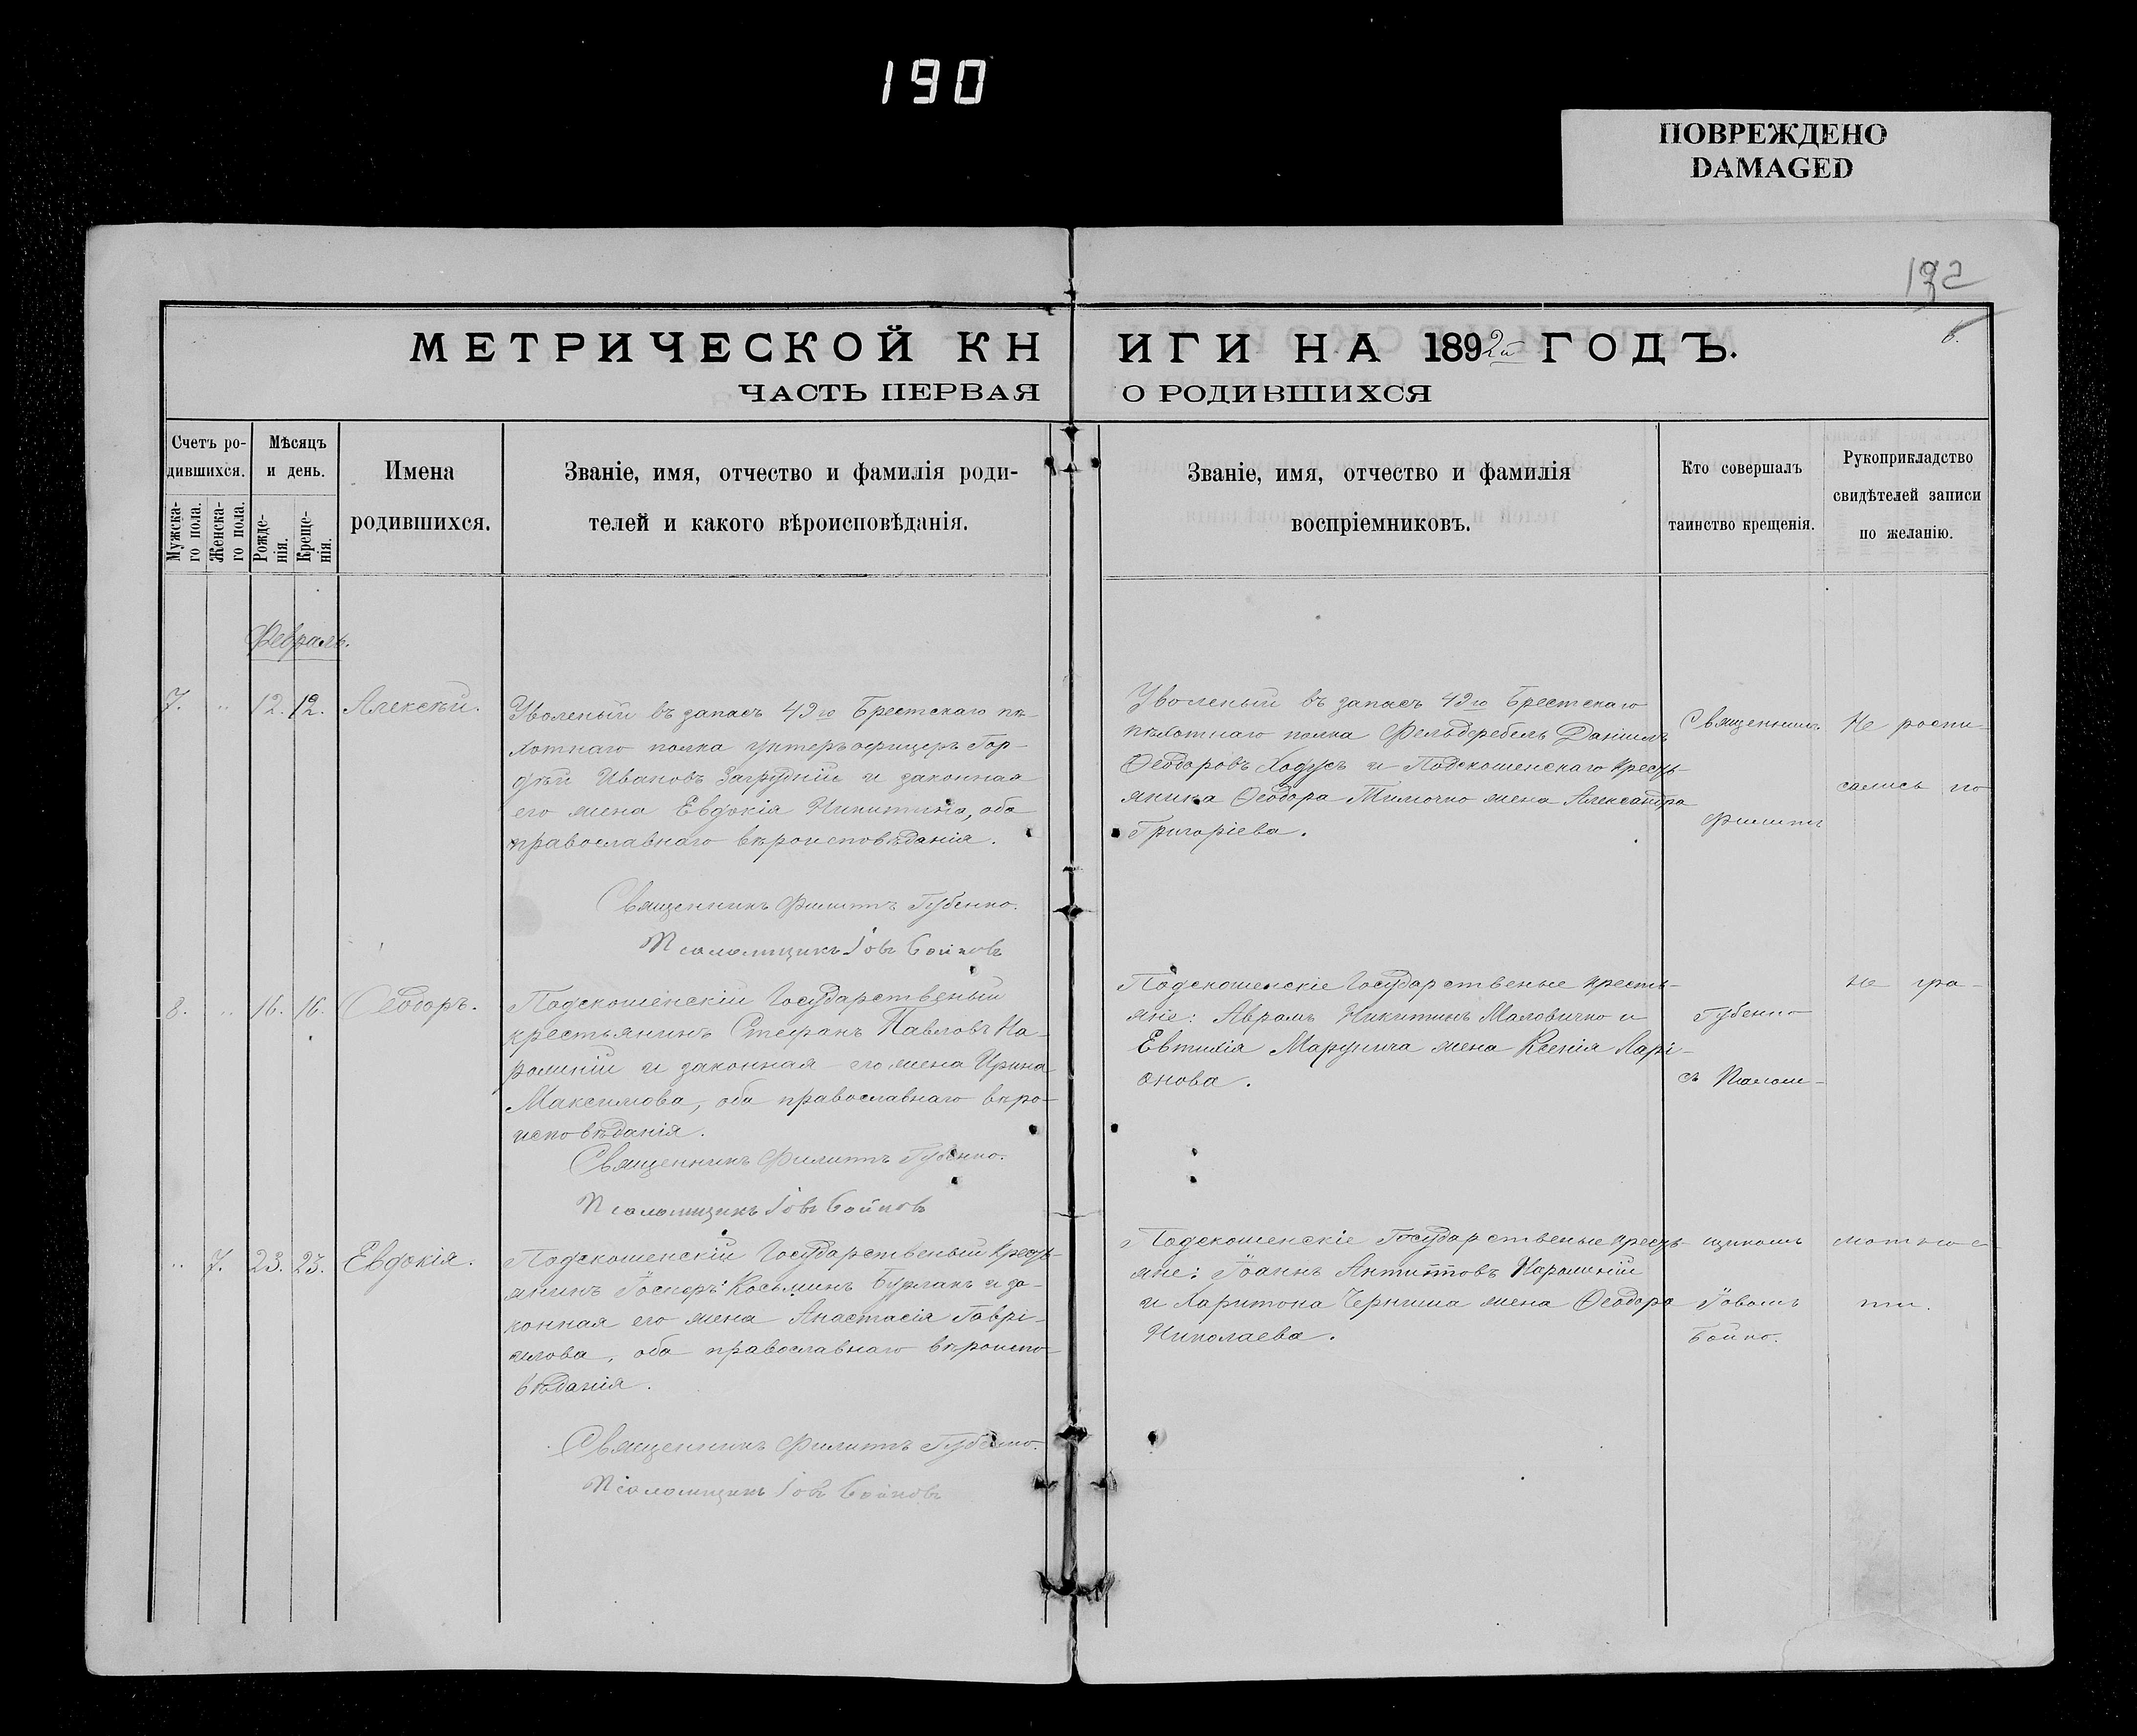 190
ПОВРЕЖДЕНО
DAMAGED
МЕТРИЧЕСКОЙ КНИГИ НА 1892й ГОДЪ.
ЧАСТЬ ПЕРВАЯ О РОДИВШИХСЯ
6.
Счетъ ро-
дившихся.
Мужска-
го пола.
Женска-
го пола.
Мѣсяцъ
и день.
Рожде-
нія.
Креще-
нія.
Имена
родившихся.
Званіе, имя, отчество и фамилія роди-
телей и какого вѣроисповѣданія.
Званіе, имя, отчество и фамилія
воспріемниковъ.
Кто совершалъ
таинство крещенія.
Рукоприкладство
свидѣтелей записи
по желанію.
Февраль.
7. " 12. 12. Алексѣй.
Уволеный въ запасъ 49го Брестскаго пѣ-
хотнаго полка унтеръ офицеръ Гор-
дѣй Ивановъ Загрудній и законная
его жена Евдокія Никитина, оба
православнаго вѣроисповѣданія.
Священникъ Филиппъ Губенко.
Псаломщикъ Іовъ Бойковъ
Уволеный въ запасъ 49го Брестскаго
пѣхотнаго полка Фельдфебель Даніилъ
Феодоровъ Ходусъ и Подокошенскаго кресть-
янина Феодора Тимочко жена Александра
Григоріева.
8. " 16. 16. Феодоръ.
Подокошенскій Государственый
крестьянинъ Стефанъ Павловъ На-
рожній и законная его жена Ирина
Максимова, оба православнаго вѣро-
исповѣданія.
Священникъ Филиппъ Губенко.
Псаломщикъ Іовъ Бойковъ
Подокошенскіе Государственые кресть-
яніе: Авраамъ Никитинъ Маловичко и
Евтихія Марунича жена Ксенія Ларі-
онова.
" 7. 23. 23. Евдокія.
Подокошенскій Государственый кресть-
янинъ Косьминъ Бурлакъ и за-
конная его жена Анастасія Гаврі-
илова, оба православнаго вѣроиспо-
вѣданія.
Священникъ Филиппъ Губенко.
Псаломщикъ Іовъ Бойковъ
Подокошенскіе Государственые кресть-
яне: Іоаннъ Антиповъ Нарожній
и Харитона Черныша жена Феодора
Николаева.
Священникъ
Филиппъ
Губенко
съ Псалом-
щикомъ
Іовомъ
Бойко.
Не роспи-
сались по
не гра-
мотнос-
ти.